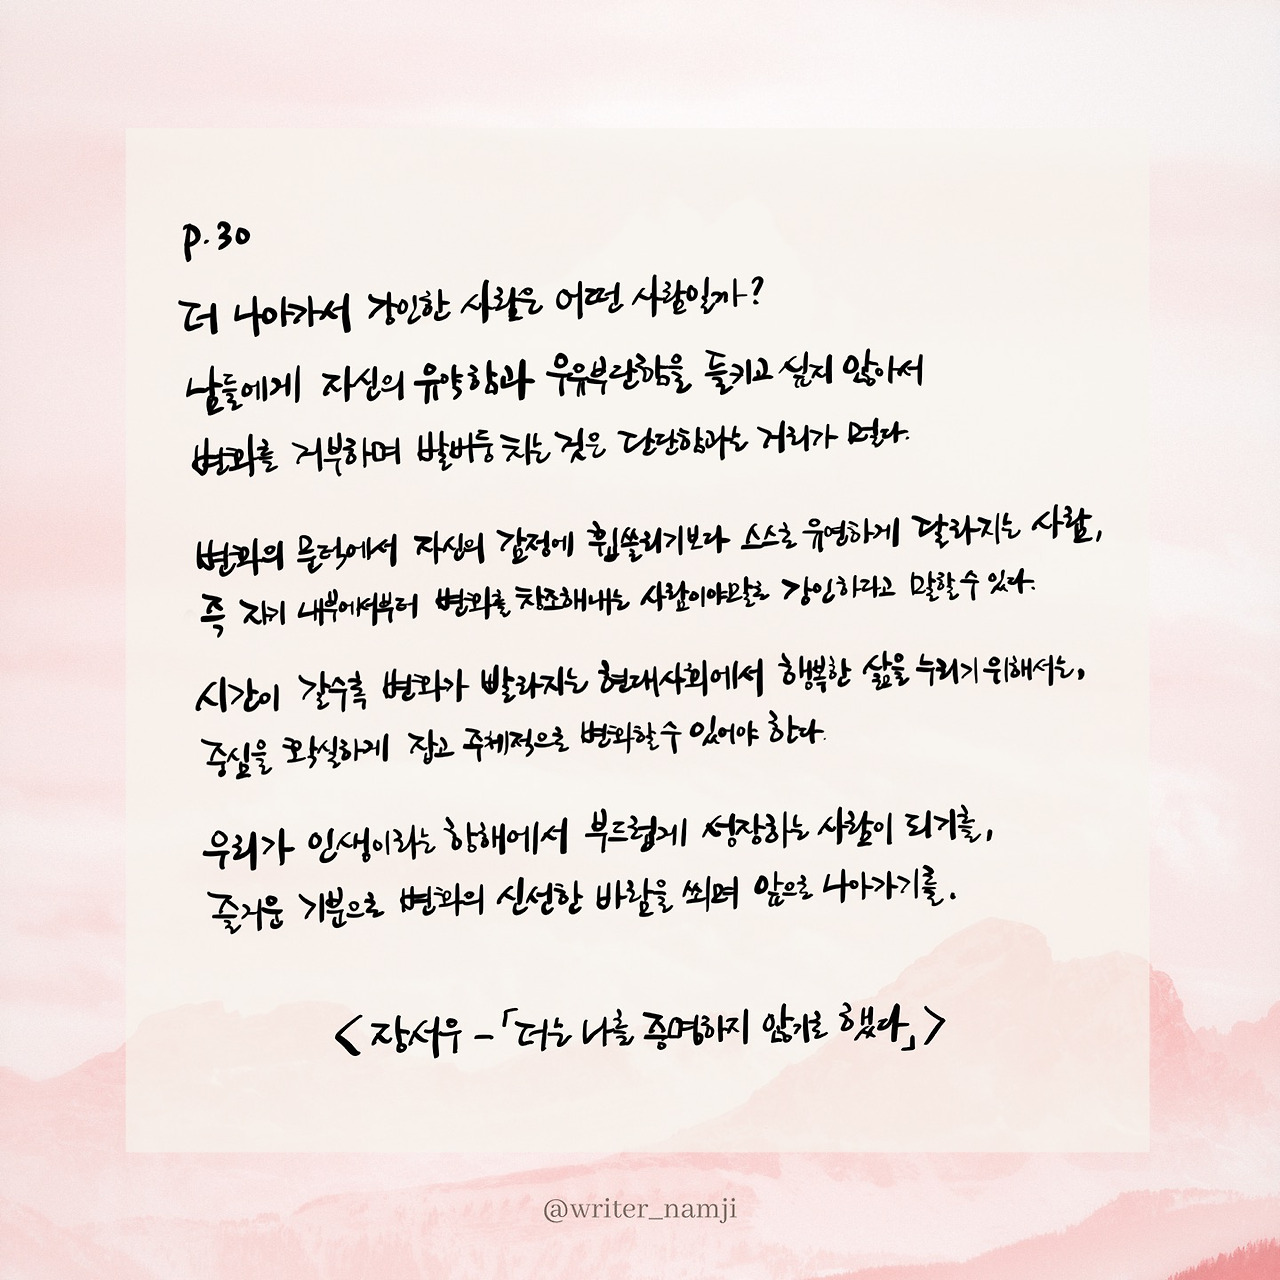 p.30
더 나아가서 강인한 사람은 어떤 사람일까?
남들에게 자신의 유약함과 우유부단함을 들키고 싶지 않아서
변화를 거부하며 발버둥 치는 것은 단단함과는 거리가 멀다.
변화의 문턱에서 자신의 감정에 휩쓸리기보다 스스로 유연하게 달라지는 사람,
즉 자기 내부에서부터 변화를 창조해내는 사람이야말로 강인하다고 말할 수 있다.
시간이 갈수록 변화가 빨라지는 현대사회에서 행복한 삶을 누리기 위해서는,
중심을 확실하게 잡고 주체적으로 변화할 수 있어야 한다.
우리가 인생이라는 항해에서 부드럽게 성장하는 사람이 되기를,
즐거운 기분으로 변화의 신선한 바람을 쐬며 앞으로 나아가기를.
<장서우 - 「더는 나를 증명하지 않기로 했다」>
@writer_namji